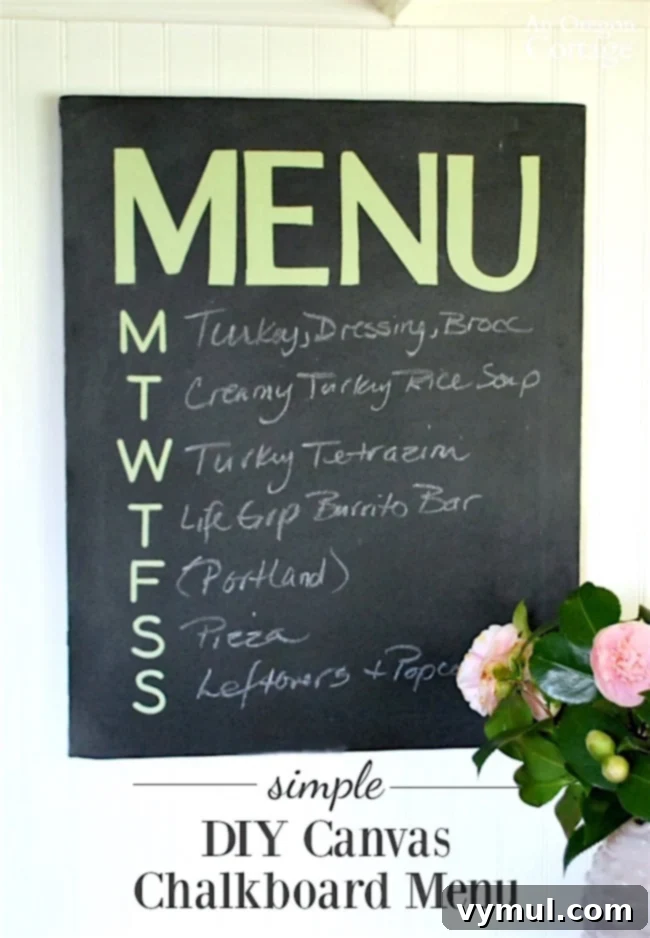 An Oregon
Cottage
MENU
M Turkey, Dressing, Brocc
T Creamy Turkey Rice Soup
W Turkey Tetrazini
T Life Grp Burrito Bar
F (Portland)
S Pizza
S Leftovers + Popc
simple
DIY Canvas
Chalkboard Menu
vymul.com